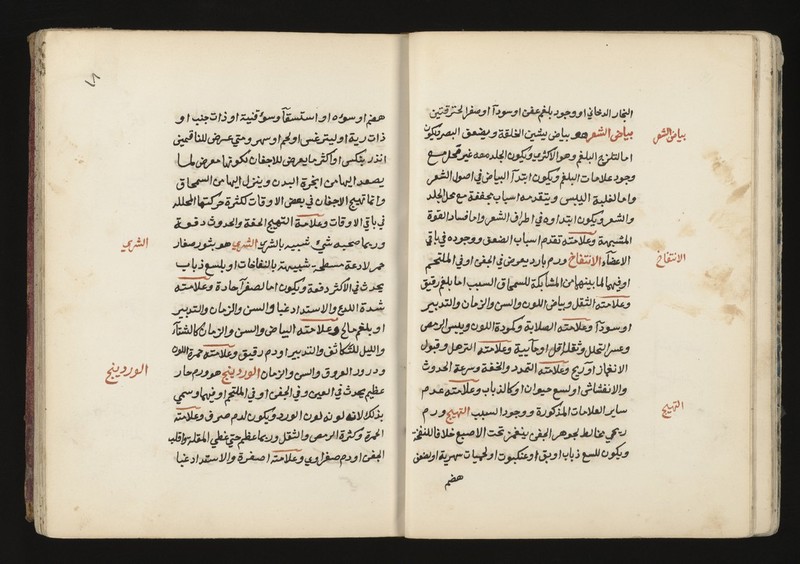 البخار الدخاني او وجود بلغم عفن او سودآ او صفرا محترقتين
بياض الشعر
بياض الشعر هو بياض يشين الخلقة ويضعف البصر ويكون
اما للتلزج البلغم وهو الاكثر ويكون الجلد معه غير قحل مع
وجود علامات البلغم ويكون ابتدآ البياض في اصول الشعر
واما لغلبة اليبس ويتقدمه اسباب مجففة مع محل الجلد
والشعر ويكون ابتداوه في اطراف الشعر واما فساد القوة
المشبهة وعلامته تقدم اسباب الضعف ووجوده في باقي
الانتفاخ
الاعضآء الانتفاخ ورم بارد يعرض في الجفن او في الملتحم
او فيهما لما بينهما من المشابكة للسمحاق السبب اما بلغم رقيق
وعلامته الثقل وبياض اللون والسن والزمان والتدبير
او سودآ وعلامته الصلابة وكمودة اللون ويبس الرمص
وعسر التحلل وثقل اقل او مآيية وعلامته الترهل وقبول
الانغماز او ريح وعلامته التمدد والخفة وسرعة الحدوث
والانفشاش او لسع حيوان او كالذباب وعلامته عدم
التهيج
ساير العلامات المذكورة ووجود السبب التهيج ورم
ريحي مخالط لجوهر الجفن ينغمز تحت الاصبع خلافا للنفخة
ويكون للسع ذباب او بق او عنكبوت او لحميات سهرية او لضعف
هضم
هضم او سوءه او استسقآ او سوء قنية او ذات جنب او
ذات رية او ليترغس او لحم او سهر ومتى عرض للناقهين
انذر بنكس او اكثر ما يعرض للاجفان لكونها معرض لما
يصعد اليها من ابخرة البدن وينزل اليها من السمحاق
وانما تهيج الاجفان في بعض الاوقات لكثرة حركتها المحللة
في باقي الاوقات وعلامة التهيج الخفة والحدوث دفعة
الشري
وربما صحبه شيء شبيه بالشري الشري هو بثور صغار
حمر لاذعة مسطحة شبيهة بالنفاخات او بلسع ذباب
يحدث في الاكثر دفعة ويكون اما لصفرآ حادة وعلامته
شدة اللدع والاستداد غبا والسن والزمان والتدبير
او بلغم مالح وعلامته البياض والسن والزمان كالشتآء
والليل للتكاثف والتدبير او دم رقيق وعلامته حمرة اللون
الوردينج
ودرور العروق والسن والزمان الوردينج هو ورم حار
عظيم يحدث في العين وفي الجفن او في الملتحم او فيهما وسمي
بذلك لانه لونه لون الورد ويكون لدم صرف وعلامته
الحمرة وكثرة الرمص والثقل وربما عظم حتى غطي المقلة وانقلب
الجفن او دم صفراوي وعلامته اصفرة والاستداد غبا